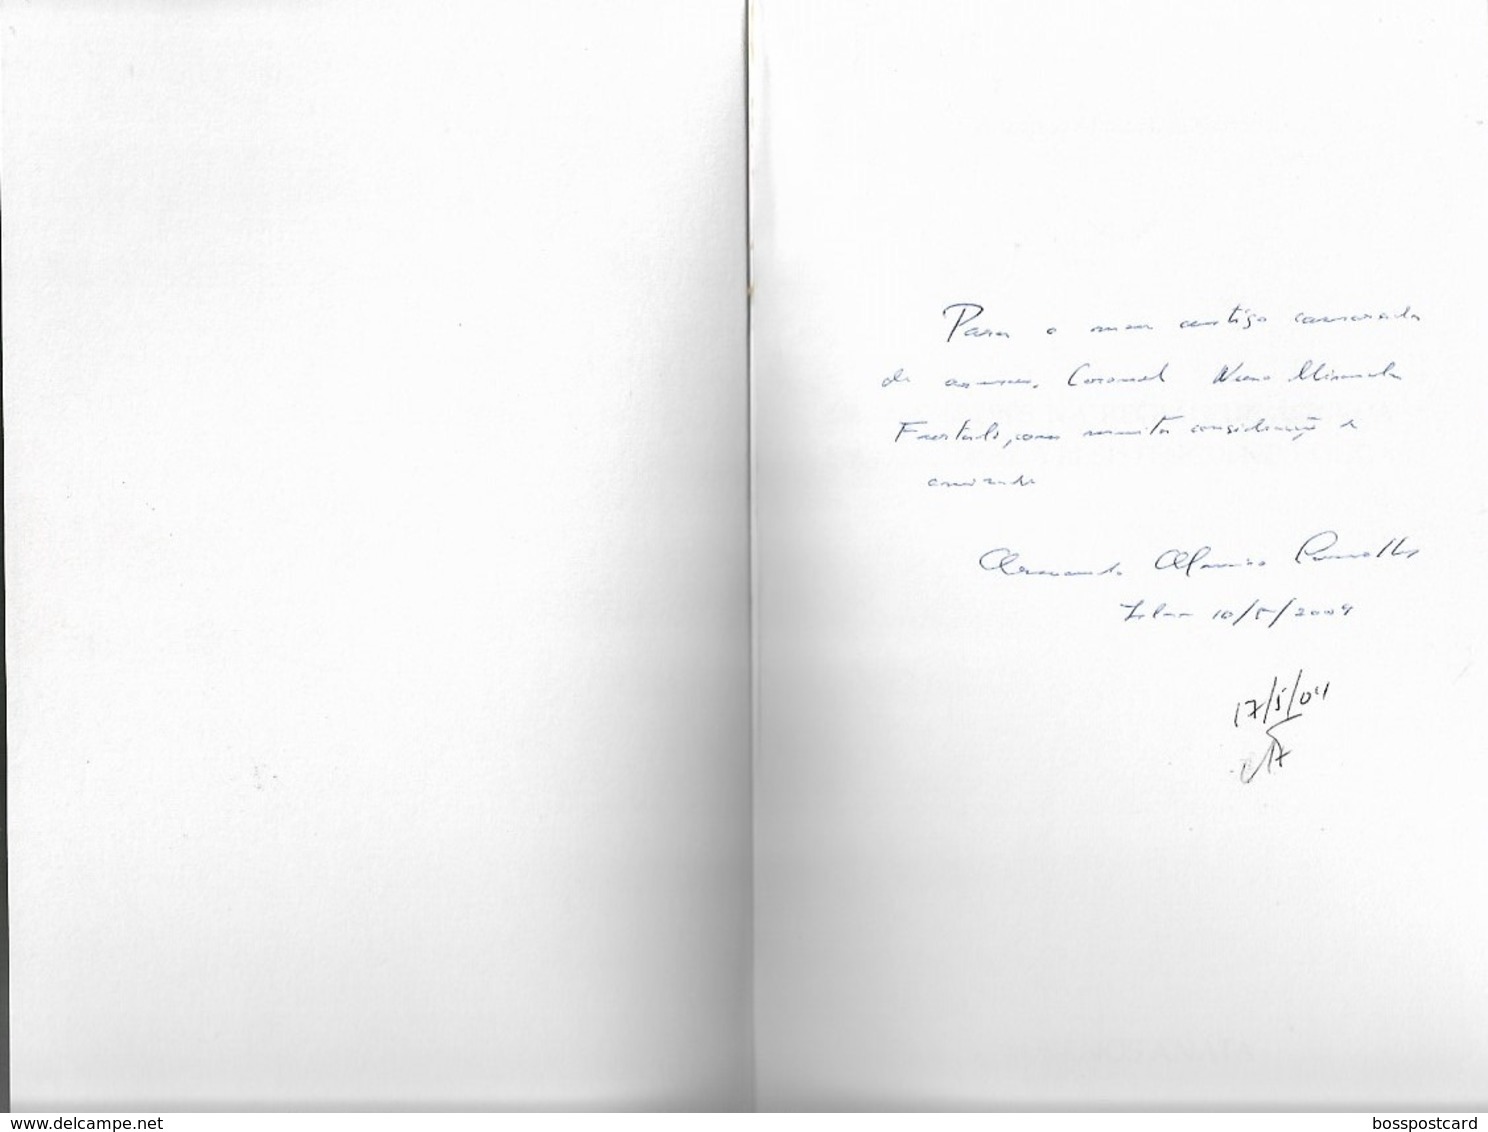 Para o meu antigo camarada
de armas, Coronel Nuno Miranda
Furtado, com muita consideração e
amizade
Armando
10/5/2004
17/5/04
delcampe.net
bosspostcard